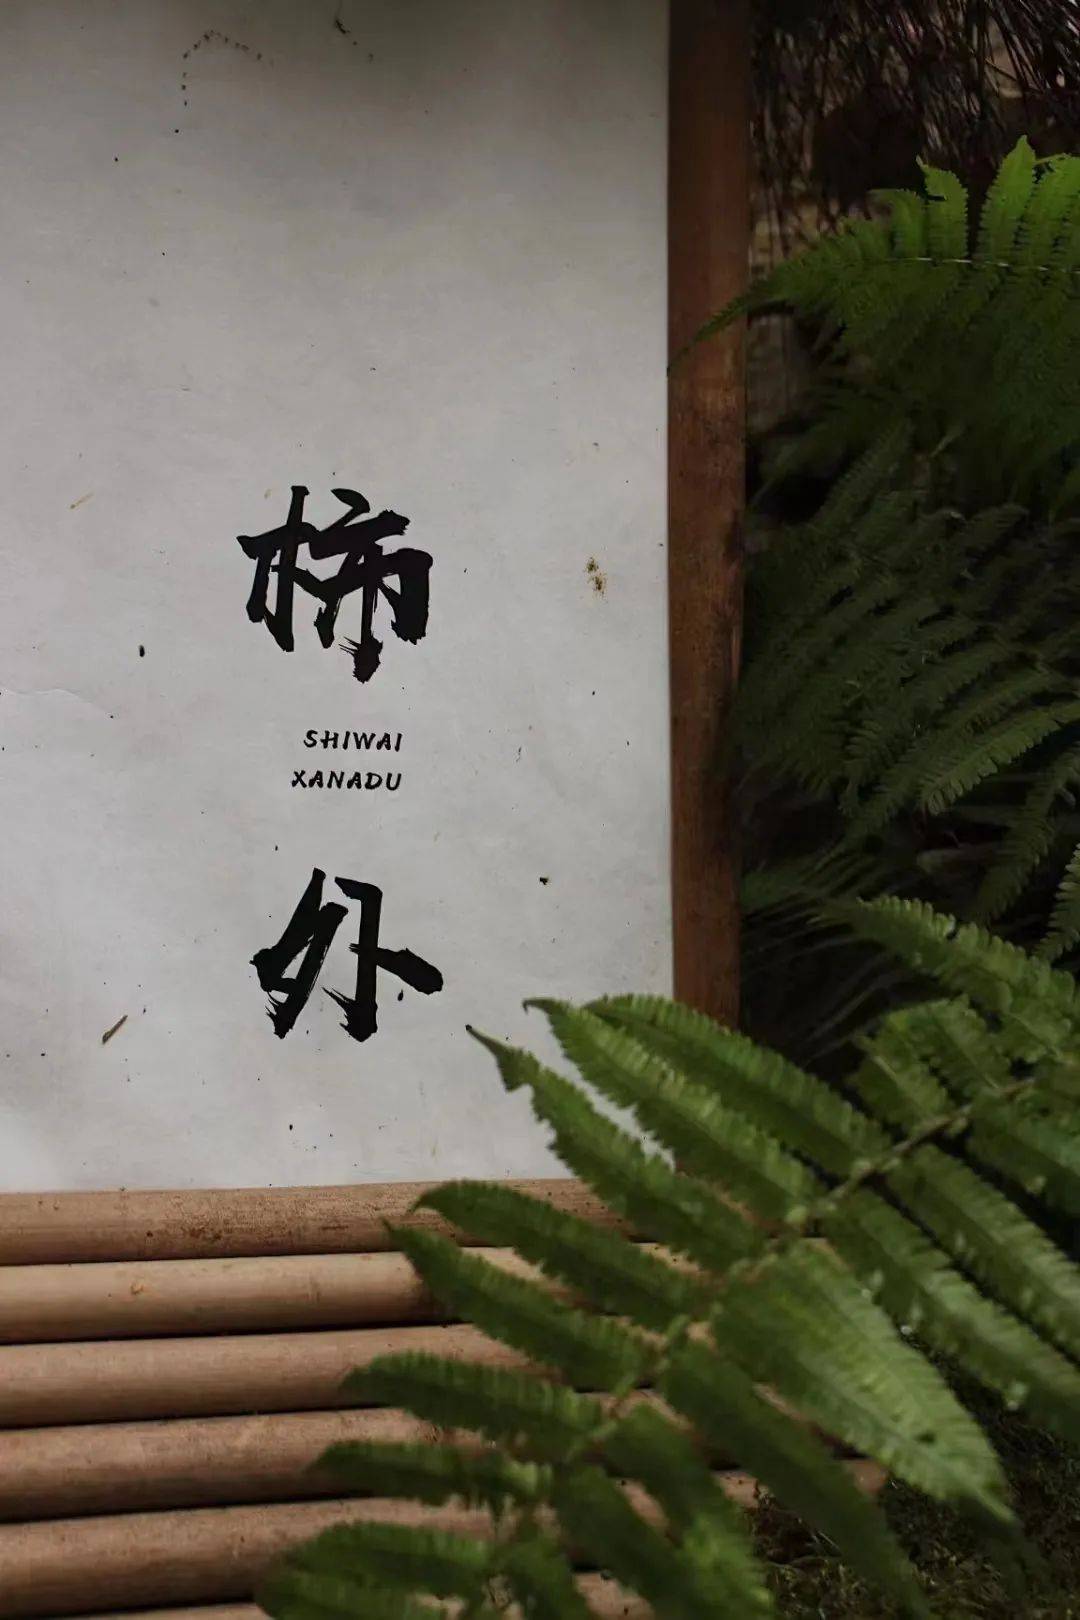 柿
SHIWAI
XANADU
外